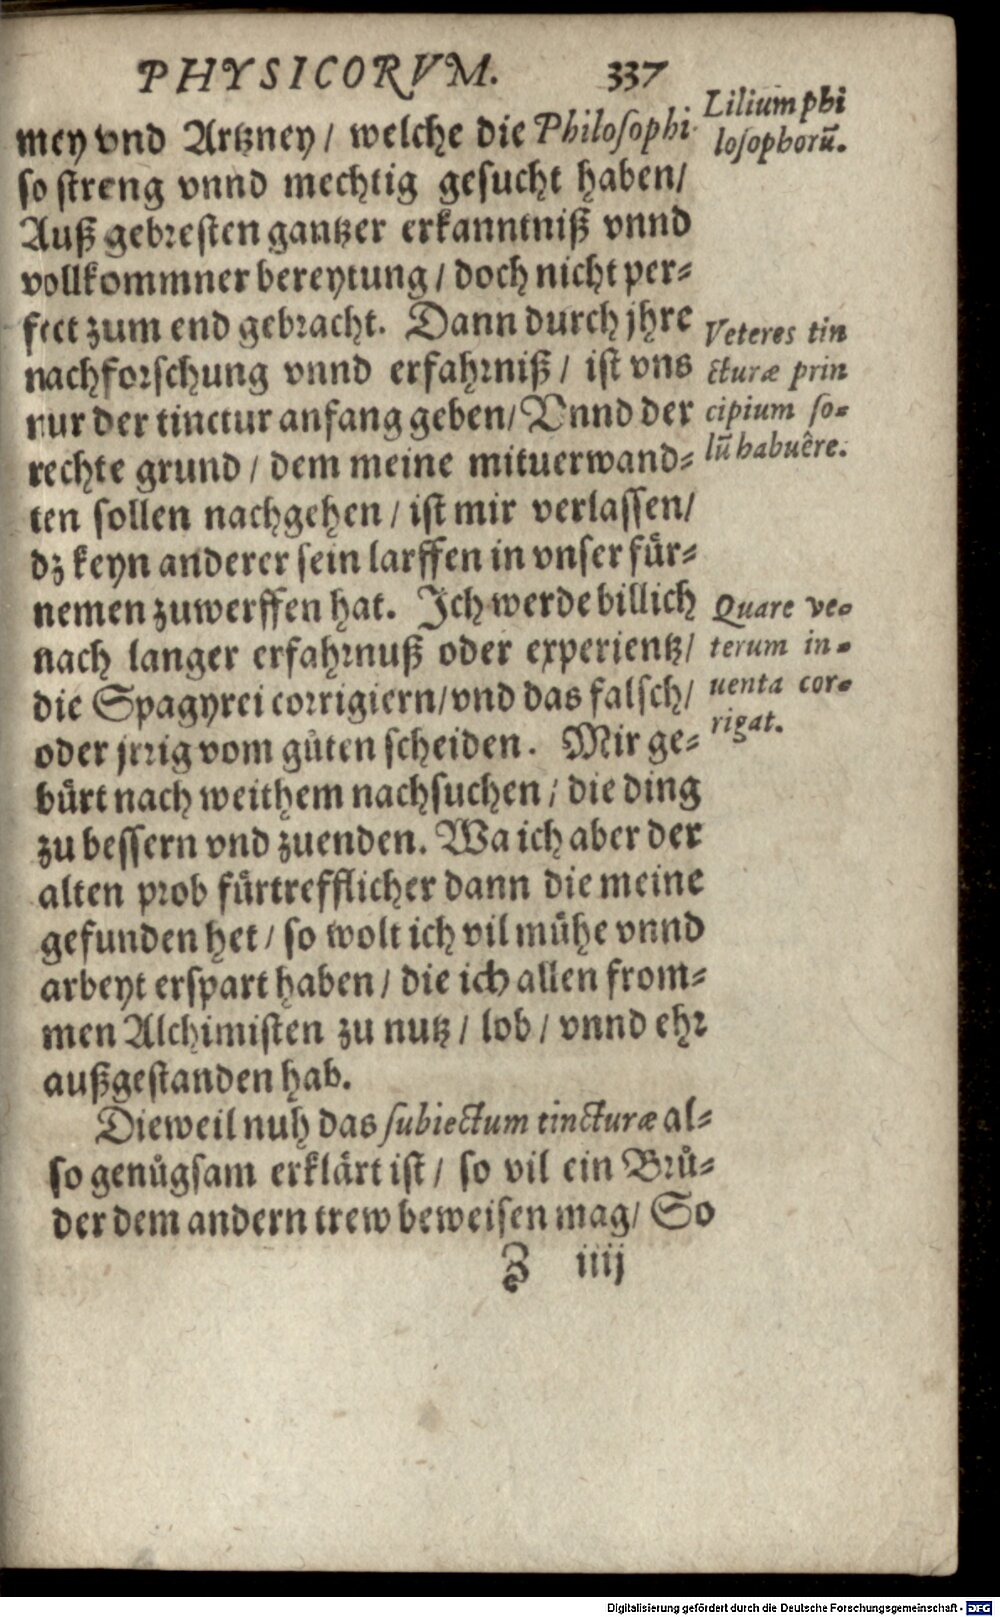 PHYSICORVM. 337
mey vnd Artzney / welche die Philosophi
so streng vnnd mechtig gesucht haben /
Auß gebresten gantzer erkanntniß vnnd
vollkommner bereytung / doch nicht per⸗
fect zum end gebracht. Dann durch jhre
nachforschung vnnd erfahrniß / ist vns
nur der tinctur anfang geben / Vnnd der
rechte grund / dem meine mituerwand⸗
ten sollen nachgehen / ist mir verlassen /
dz keyn anderer sein larffen in vnser für⸗
nemen zuwerffen hat. Ich werde billich
nach langer erfahrnuß oder experientz /
die Spagyrei corrigiern / vnd das falsch /
oder jrrig vom gůten scheiden. Mir ge⸗
bürt nach weithem nachsuchen / die ding
zu bessern vnd zuenden. Wa ich aber der
alten prob fürtrefflicher dann die meine
gefunden het / so wolt ich vil mühe vnnd
arbeyt erspart haben / die ich allen from⸗
men Alchimisten zu nutz / lob / vnnd ehr
außgestanden hab.
Dieweil nuh das subiectum tincturæ al⸗
so genůgsam erklärt ist / so vil ein Brů⸗
der dem andern trew beweisen mag / So
Z iiij
Lilium phi
losophorũ.
Veteres tin
cturæ prin
cipium so⸗
lũ habuêre.
Quare ve⸗
terum in⸗
uenta cor⸗
rigat.
Digitalisierung gefördert durch die Deutsche Forschungsgemeinschaft - DFG